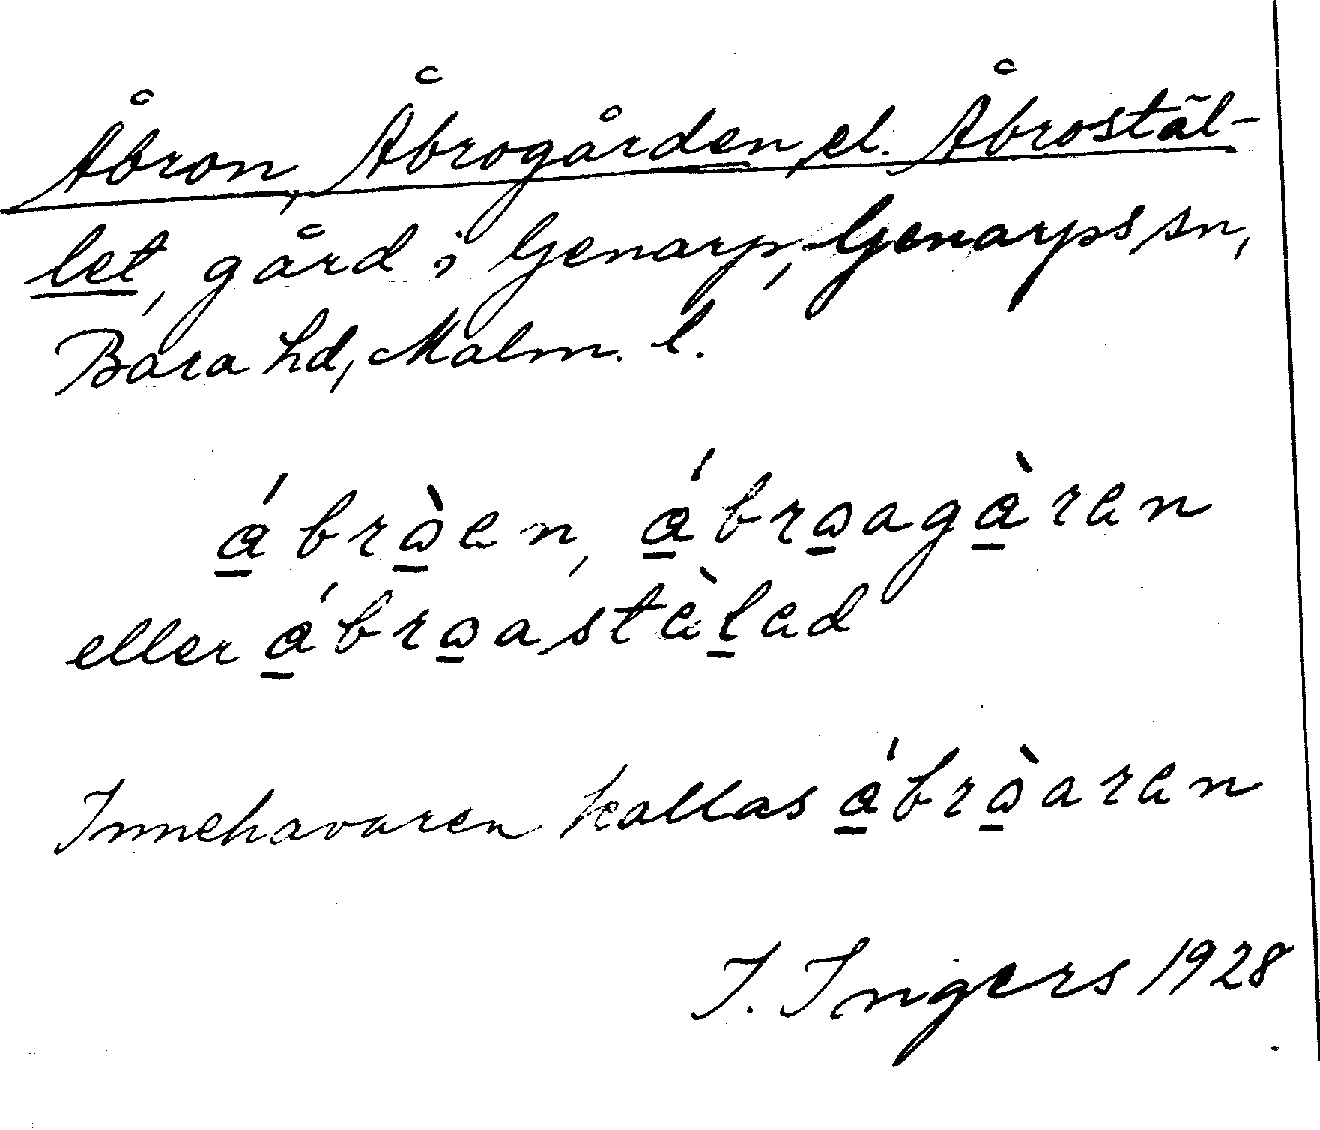 Åbron, Åbrogården el. Åbrostäl-
let, gård i Genarp, Genarps sn,
Bara hd, Malm. l.
á̱brò̱en, á̱bro̱agà̱ren
eller á̱bro̱astæ̀ḻed
Innehavaren kallas á̱brò̱aren
I. Ingers 1928